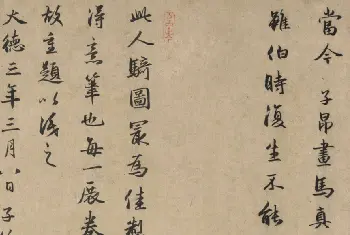 當今子昂畫馬真
雖伯時復生不能
此人騎圖最為佳製
得意筆也每一展卷
故重題以識之
大德三年三月八日子